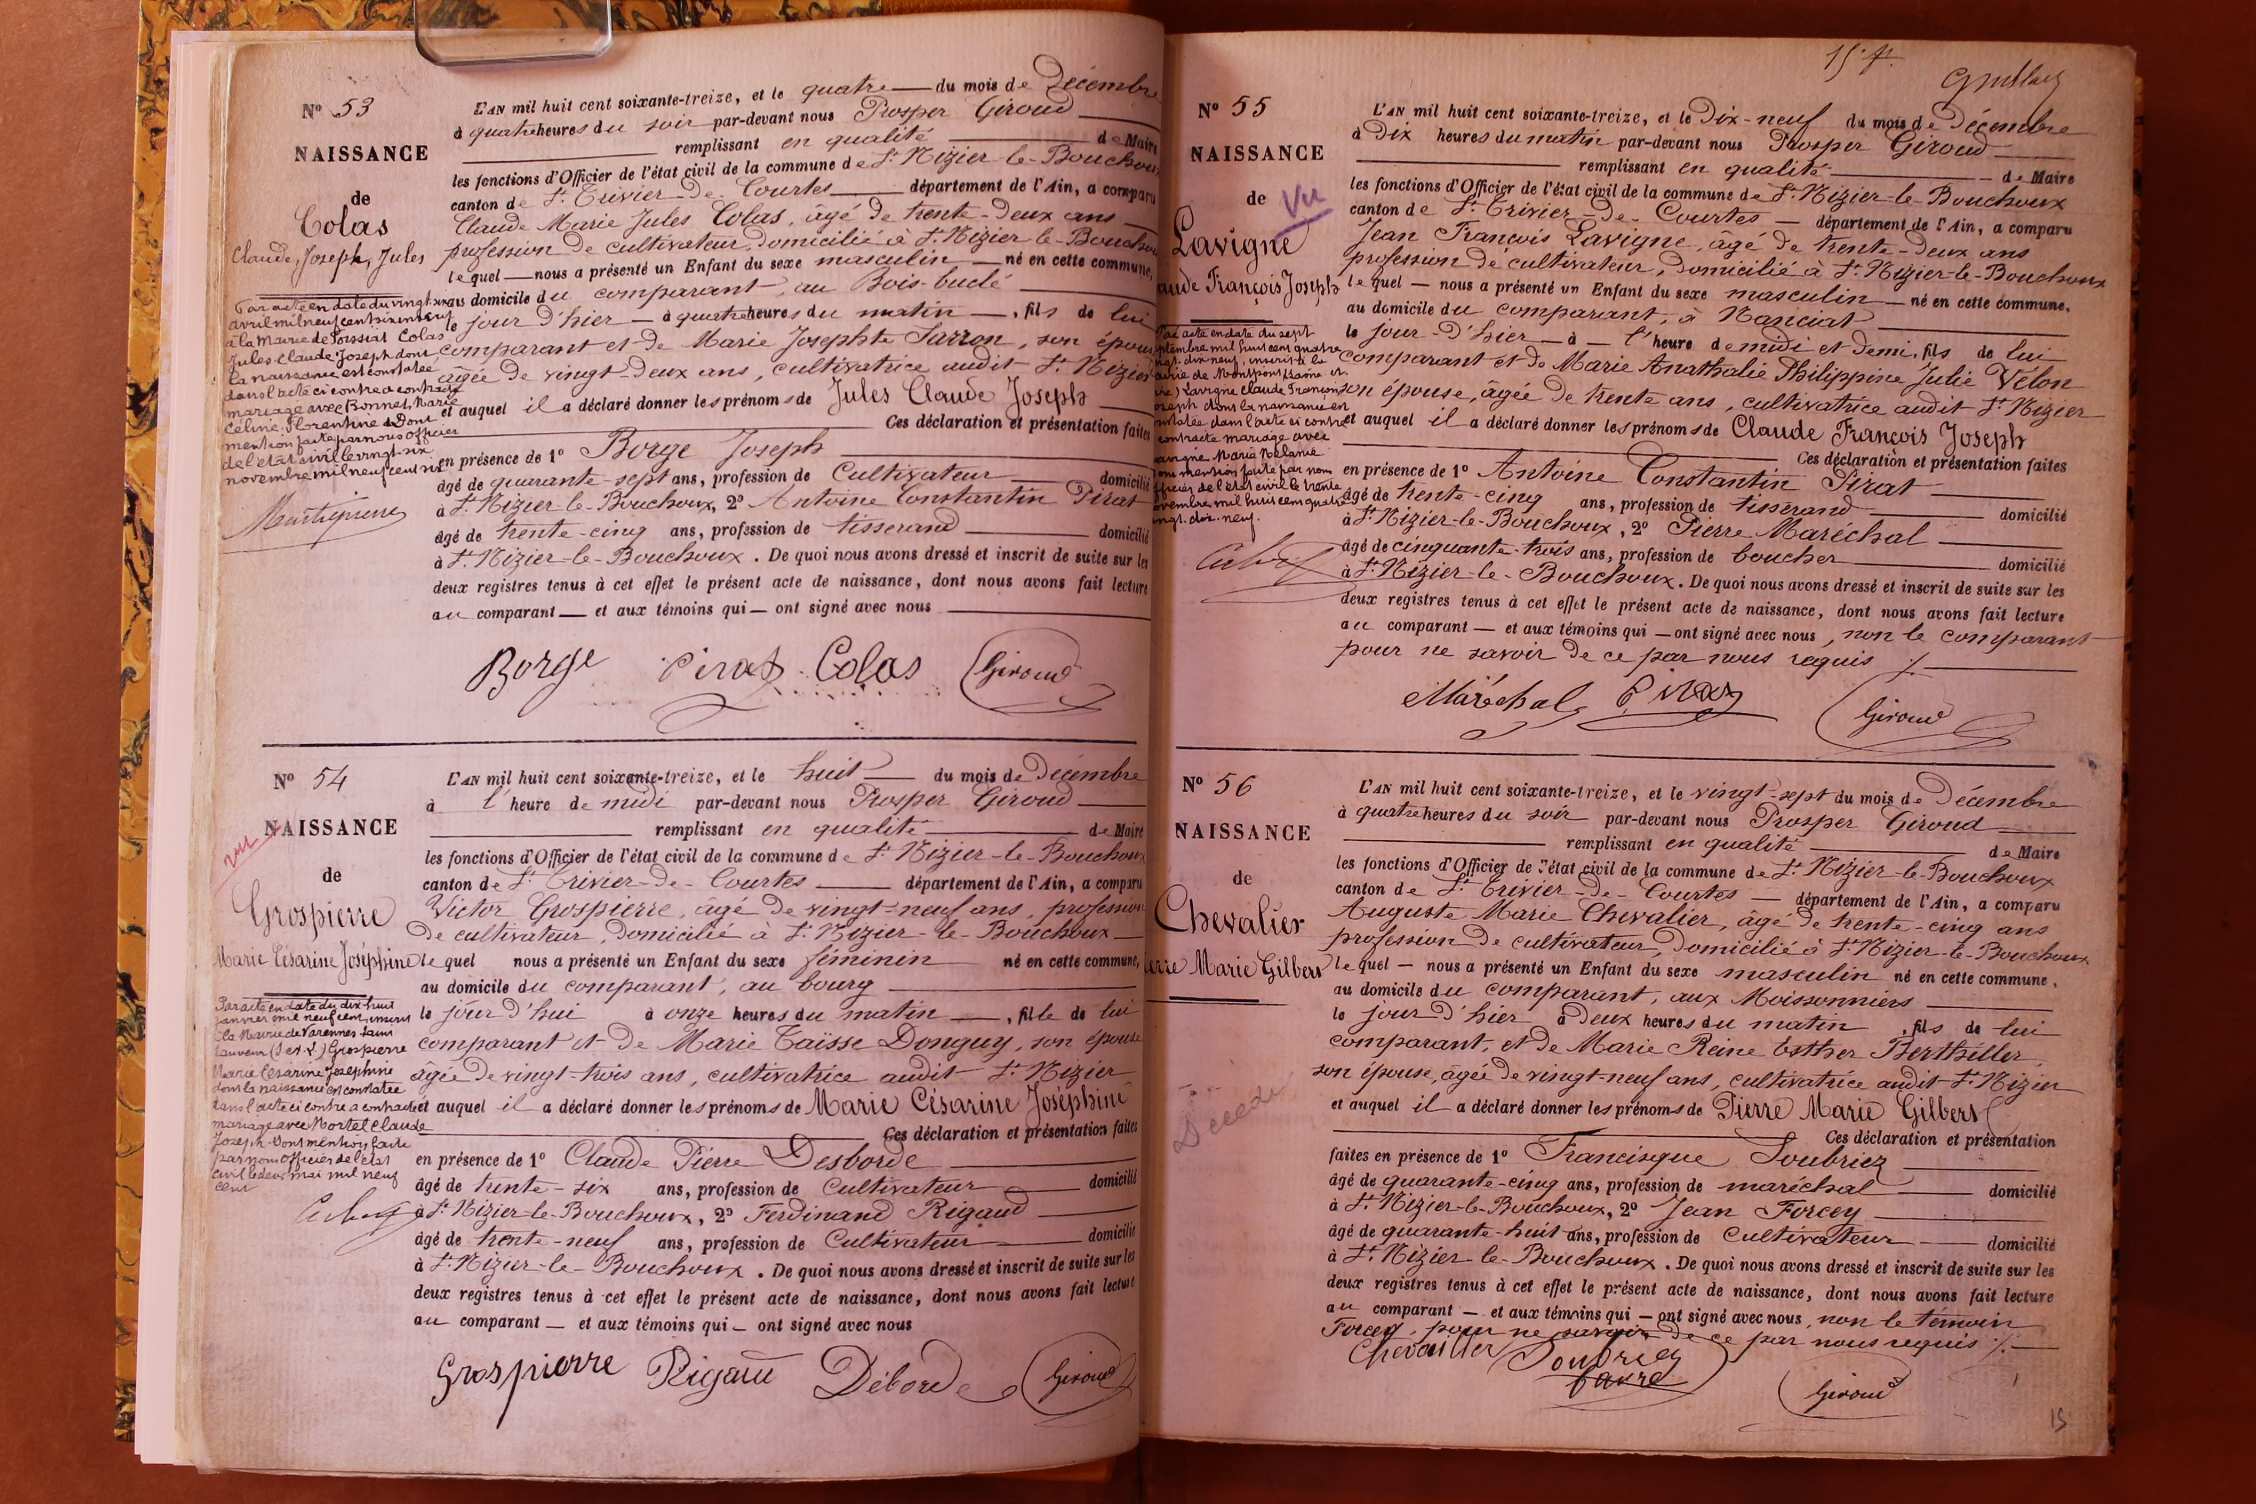 Nº 53
NAISSANCE
de
Colas
Claude, Joseph, Jules
Par acte en date du vingt-six
avril mil neuf cent
à la Mairie de Foissiat Colas
Jules Claude Joseph dont
la naissance est constatée
dans l'acte ci contre a contracté
mariage avec Bonnet, Marie
Céline, Florentine. Dont
mention faite par nous officier
de l'état civil le vingt-six
novembre mil neuf cent six
L'AN mil huit cent soixante-treize, et le quatre du mois de Décembre
à quatre heures du soir par-devant nous Prosper Giroud
remplissant en qualité de Maire
les fonctions d'Officier de l'état civil de la commune de St Nizier-le-Bouchoux
canton de St Trivier-de-Courtes département de l'Ain, a comparu
Claude Marie Jules Colas, âgé de trente-deux ans
profession de cultivateur, domicilié à St Nizier-le-Bouchoux
lequel nous a présenté un Enfant du sexe masculin né en cette commune,
au domicile du comparant, au Bois-buclé
le jour d'hier à quatre heures du matin, fils de lui
comparant et de Marie Josephte Surron, son épouse
âgée de vingt-deux ans, cultivatrice audit St Nizier
et auquel il a déclaré donner les prénoms de Jules Claude Joseph
Ces déclaration et présentation faites
en présence de 1º Borge Joseph
âgé de quarante-sept ans, profession de Cultivateur domicilié
à St Nizier-le-Bouchoux, 2º Antoine Constantin Pirat
âgé de trente-cinq ans, profession de tisserand domicilié
à St Nizier-le-Bouchoux. De quoi nous avons dressé et inscrit de suite sur les
deux registres tenus à cet effet le présent acte de naissance, dont nous avons fait lecture
au comparant et aux témoins qui ont signé avec nous
Borge Pirat Colas Giroud
Nº 54
NAISSANCE
vu
de
Grospierre
Marie Césarine Joséphine
Par acte en date du dix huit
janvier mil neuf cent, inscrit
à la Mairie de Varennes Saint
Sauveur (S et L) Grospierre
Marie Césarine Joséphine
dont la naissance est constatée
dans l'acte ci contre a contracté
mariage avec Mortel Claude
Joseph. Dont mention faite
par nous Officier de l'état
civil le deux mai mil neuf
cent
L'AN mil huit cent soixante-treize, et le huit du mois de Décembre
à l'heure de midi par-devant nous Prosper Giroud
remplissant en qualité de Maire
les fonctions d'Officier de l'état civil de la commune de St Nizier-le-Bouchoux
canton de St Trivier-de-Courtes département de l'Ain, a comparu
Victor Grospierre, âgé de vingt-neuf ans, profession
de cultivateur, domicilié à St Nizier-le-Bouchoux
lequel nous a présenté un Enfant du sexe féminin né en cette commune,
au domicile du comparant, au bourg
le jour d'hui à onze heures du matin, fille de lui
comparant et de Marie Taïsse Donguy, son épouse
âgée de vingt-trois ans, cultivatrice audit St Nizier
et auquel il a déclaré donner les prénoms de Marie Césarine Joséphine
Ces déclaration et présentation faites
en présence de 1º Claude Pierre Desborde
âgé de trente-six ans, profession de Cultivateur domicilié
à St Nizier-le-Bouchoux, 2º Ferdinand Rigaud
âgé de trente-neuf ans, profession de Cultivateur domicilié
à St Nizier-le-Bouchoux. De quoi nous avons dressé et inscrit de suite sur les
deux registres tenus à cet effet le présent acte de naissance, dont nous avons fait lecture
au comparant et aux témoins qui ont signé avec nous
Grospierre Rigaud Déborde Giroud
15 f.
Nº 55
NAISSANCE
de
Vu
Lavigne
aude François Joseph
Par acte en date du sept
ptembre mil huit cent quatre
vingt-dix-neuf, inscrit à la
airie de Montpont (Saône et
ire) Lavigne Claude François
oseph dont la naissance est
nstatée dans l'acte ci contre
contracté mariage avec
avigne Marie Mélanie
ont mention faite par nous
fficier de l'état civil le trente
ovembre mil huit cent quatre
ingt-dix-neuf.
L'AN mil huit cent soixante-treize, et le Dix-neuf du mois de Décembre
à Dix heures du matin par-devant nous Prosper Giroud
remplissant en qualité de Maire
les fonctions d'Officier de l'état civil de la commune de St Nizier-le-Bouchoux
canton de St Trivier-de-Courtes département de l'Ain, a comparu
Jean François Lavigne, âgé de trente-deux ans
profession de cultivateur, domicilié à St Nizier-le-Bouchoux
lequel nous a présenté un Enfant du sexe masculin né en cette commune,
au domicile du comparant, à Nanciat
le jour d'hier à l'heure de midi et demi, fils de lui
comparant et de Marie Anathalie Philippine Julie Vélon
son épouse, âgée de trente ans, cultivatrice audit St Nizier
et auquel il a déclaré donner les prénoms de Claude François Joseph
Ces déclaration et présentation faites
en présence de 1º Antoine Constantin Pirat
âgé de trente-cinq ans, profession de tisserand domicilié
à St Nizier-le-Bouchoux, 2º Pierre Maréchal
âgé de cinquante-trois ans, profession de boucher domicilié
à St Nizier-le-Bouchoux. De quoi nous avons dressé et inscrit de suite sur les
deux registres tenus à cet effet le présent acte de naissance, dont nous avons fait lecture
au comparant et aux témoins qui ont signé avec nous, non le comparant
pour ne savoir de ce par nous requis ./.
Maréchal Pirat Giroud
Nº 56
NAISSANCE
de
Chevalier
ierre Marie Gilbert
Décédé
L'AN mil huit cent soixante-treize, et le vingt-sept du mois de Décembre
à quatre heures du soir par-devant nous Prosper Giroud
remplissant en qualité de Maire
les fonctions d'Officier de l'état civil de la commune de St Nizier-le-Bouchoux
canton de St Trivier-de-Courtes département de l'Ain, a comparu
Auguste Marie Chevalier, âgé de trente-cinq ans
profession de cultivateur, domicilié à St Nizier-le-Bouchoux
lequel nous a présenté un Enfant du sexe masculin né en cette commune,
au domicile du comparant, aux Moissonniers
le jour d'hier à deux heures du matin, fils de lui
comparant, et de Marie Reine Esther Berthiller
son épouse, âgée de vingt-neuf ans, cultivatrice audit St Nizier
et auquel il a déclaré donner les prénoms de Pierre Marie Gilbert
Ces déclaration et présentation
faites en présence de 1º Francisque Soubriez
âgé de quarante-cinq ans, profession de maréchal domicilié
à St Nizier-le-Bouchoux, 2º Jean Forcey
âgé de quarante-huit ans, profession de Cultivateur domicilié
à St Nizier-le-Bouchoux. De quoi nous avons dressé et inscrit de suite sur les
deux registres tenus à cet effet le présent acte de naissance, dont nous avons fait lecture
au comparant et aux témoins qui ont signé avec nous, non le témoin
Forcey, pour ne savoir de ce par nous requis ./.
Chevallier Soubriez
Giroud
15